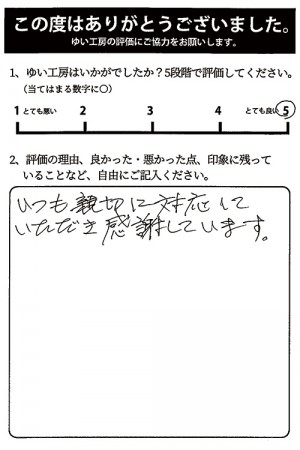 この度はありがとうございました。
ゆい工房の評価にご協力をお願いします。
1、ゆい工房はいかがでしたか？5段階で評価してください。
（当てはまる数字に○）
1 とても悪い 2 3 4 とても良い 5
2、評価の理由、良かった・悪かった点、印象に残って
いることなど、自由にご記入ください。
いつも親切に対応して
いただき感謝しています。